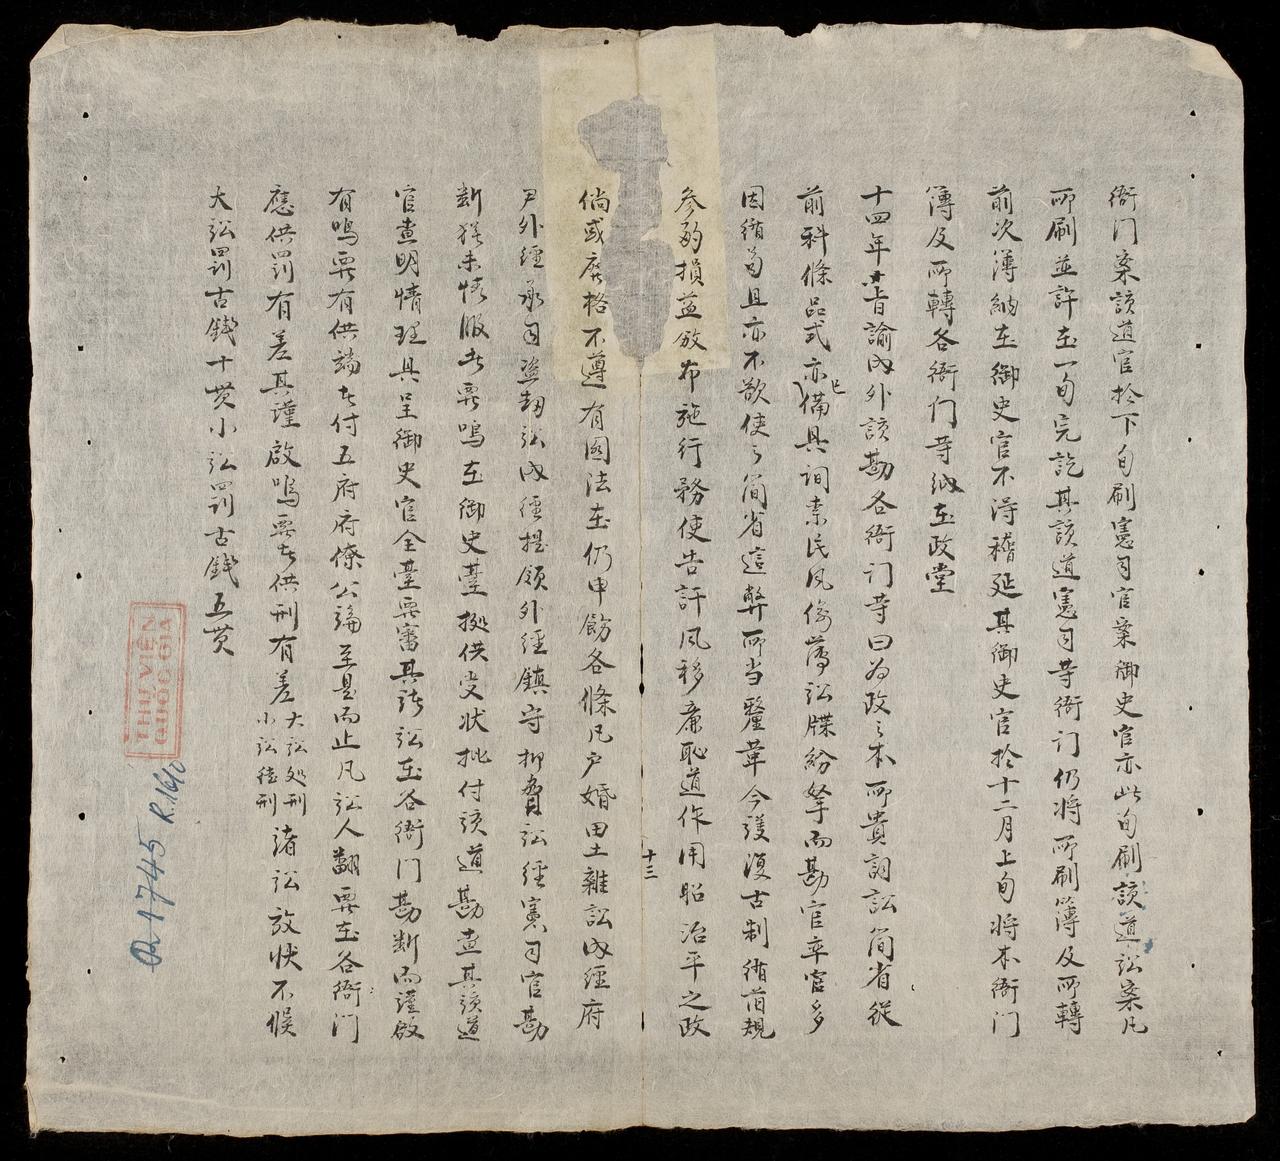 衙门案該道官於下旬刷憲司官案御史官亦此旬刷該道訟案凡
所刷並許在一旬完訖其該道憲司䓁衙门仍将所刷簿及所轉
前次簿納在御史官不得稽延其御史官於十二月上旬将本衙门
簿及所轉各衙门䓁納在政堂
十四年 旨諭内外該勘各衙门䓁曰為政之本所貴詞訟簡省從
前科條品式亦已備具詞柰民风偷薄訟牒紛拏而勘官率官多
因循苟且亦不欲使之簡省這弊所当釐革今議復古制循舊規
参酌損益放布施行務使告訐风移廉恥道作用昭治平之政
倘或廢格不遵有國法在仍申飭各條凡户婚田土雜訟内經府
尹外經承司盗刼訟内經提領外經鎮守 訟經憲司官勘
断猶未悕服者要鳴在御史臺擬供受状批付該道勘查其該道
官查明情理具呈御史官全臺要審其訴訟在各衙门勘断而謹啟
有鳴要有供端者付五府府僚公論至是而止凡訟人翻要在各衙门
應供罰有差其謹啟鳴要者供刑有差大訟处刑小訟徒刑諸訟放状不候
大訟罰古銭十貫小訟罰古銭五貫
十三
THƯ VIỆN
QUỐC GIA
R.1610
A745